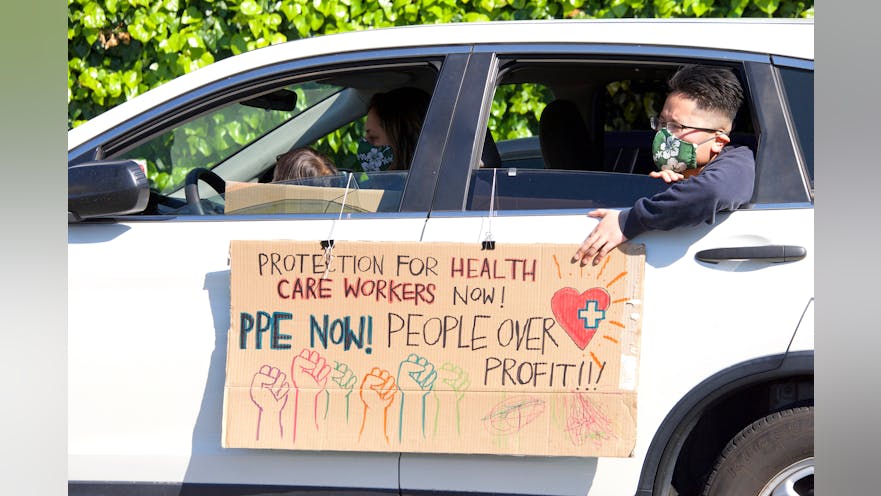 PROTECTION FOR HEALTH
CARE WORKERS NOW!
PPE NOW! PEOPLE OVER
PROFIT!!!